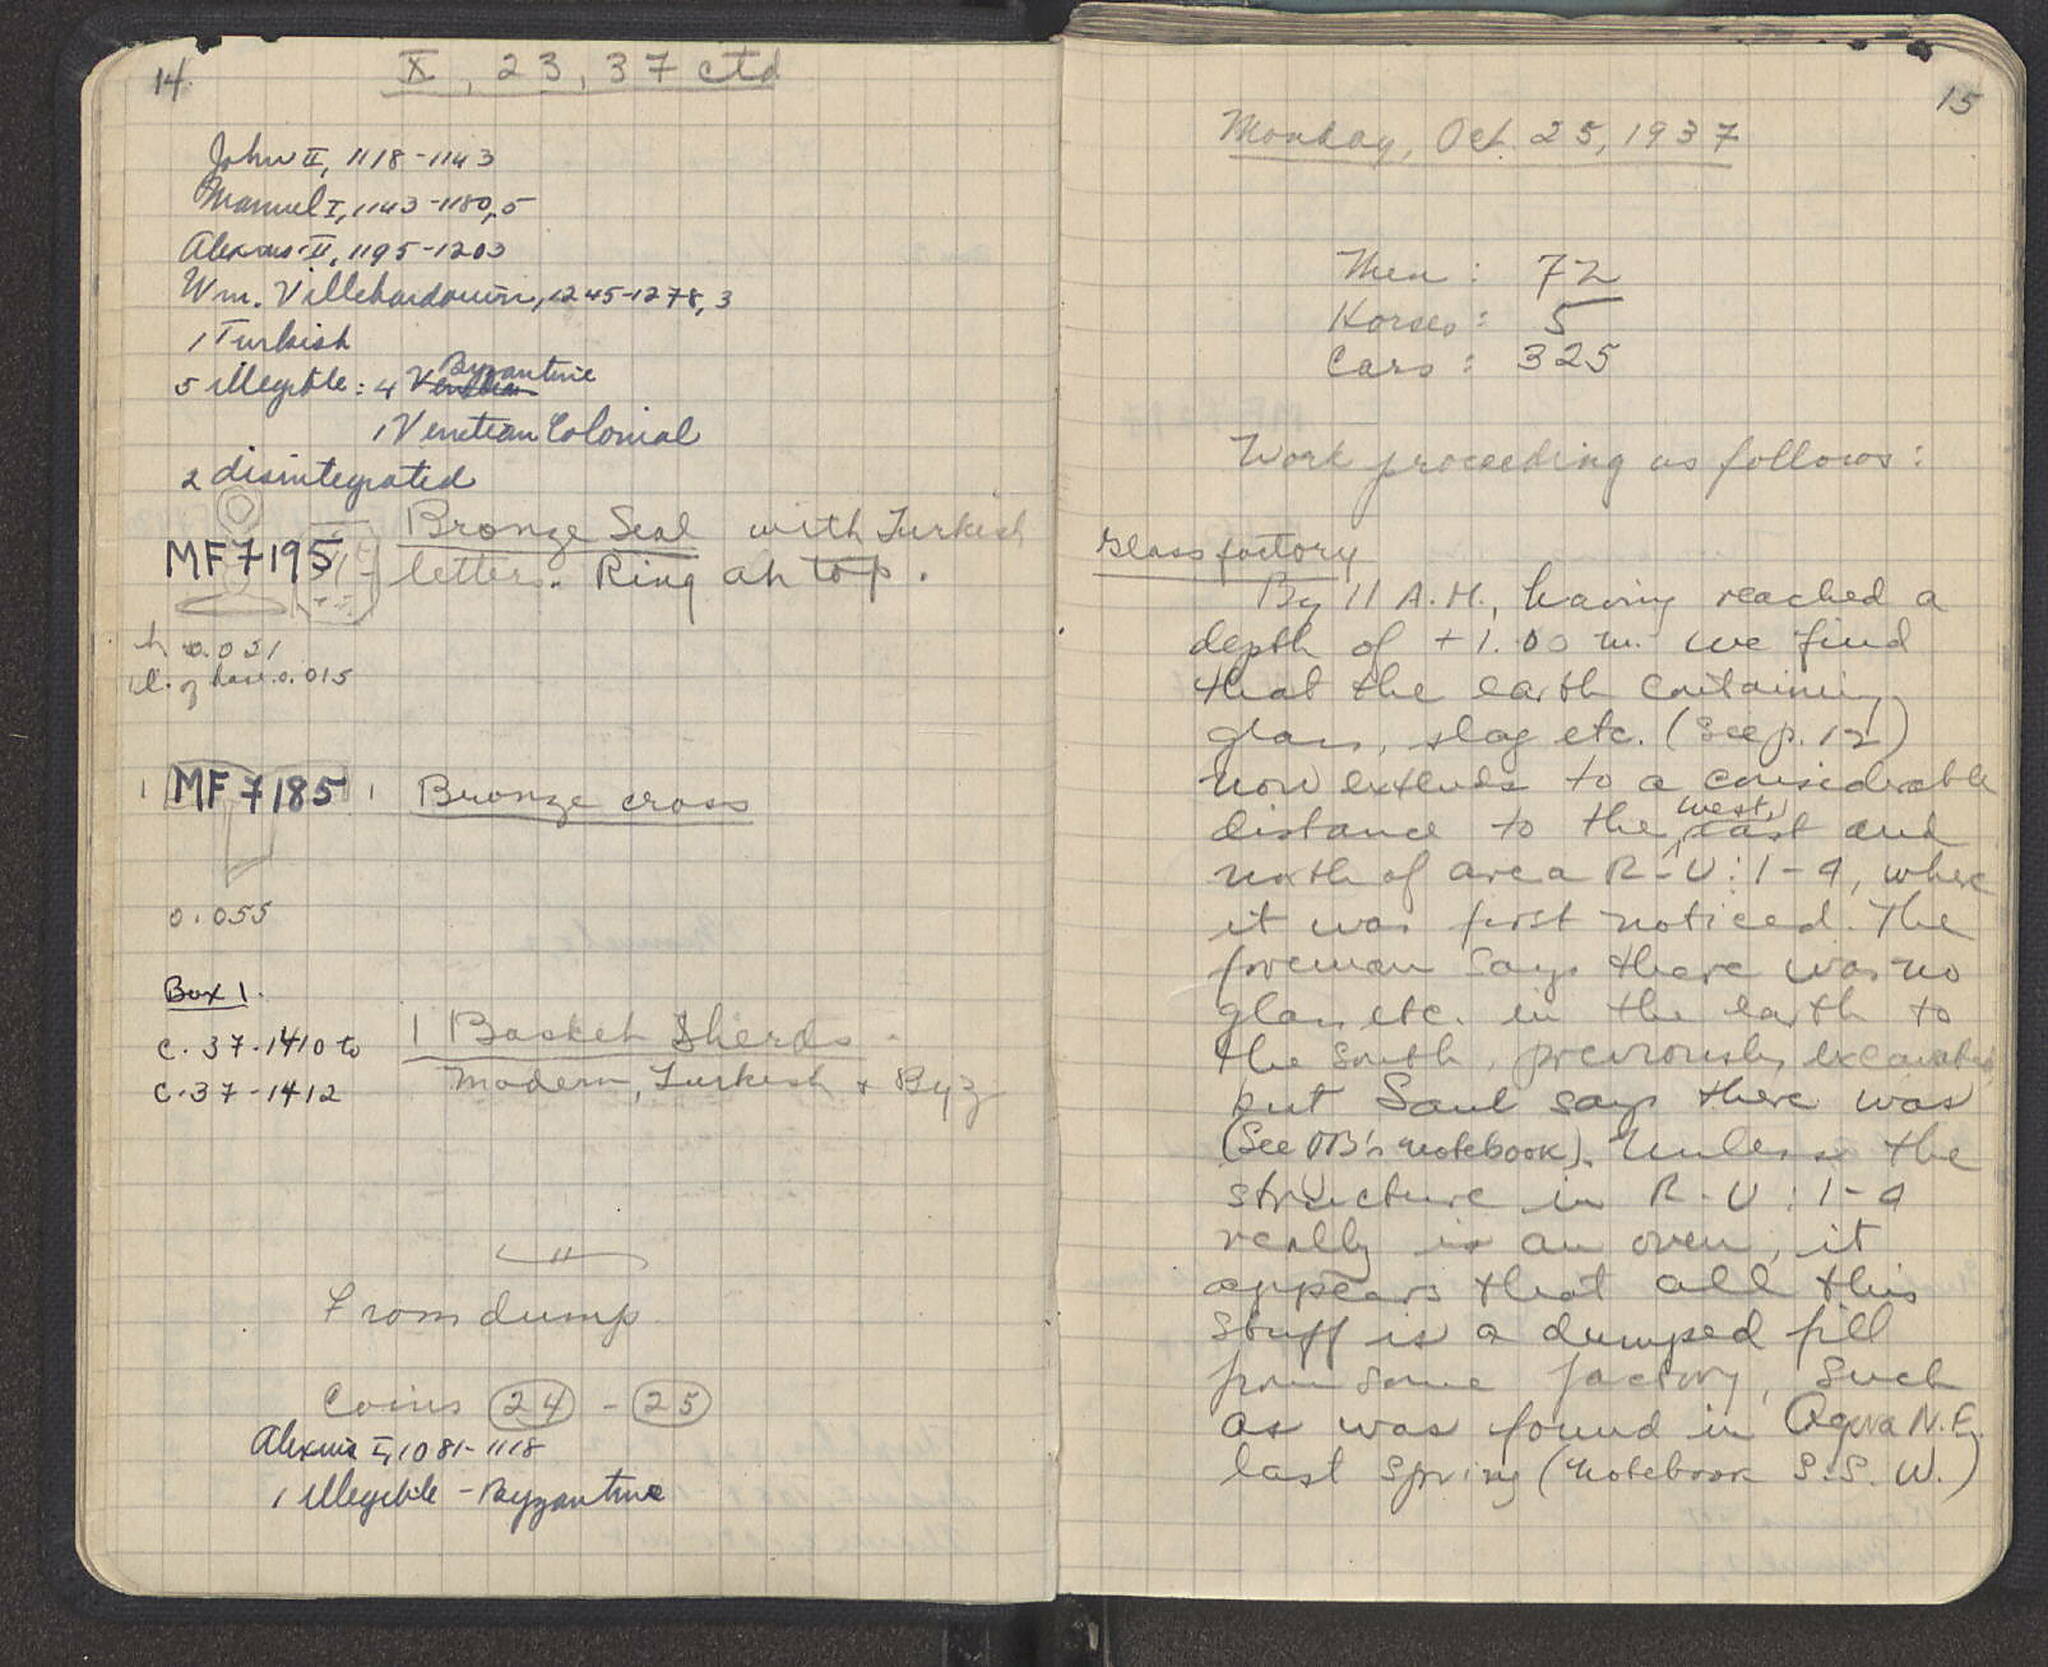 14.
X, 23, 37 ctd
John II, 1118-1143
Manuel I, 1143-1180, 5
Alexius II, 1195-1203
Wm. Villehardouin, 1245-1278, 3
1 Turkish
5 illegible: 4 Byzantine
1 Venetian Colonial
2 disintegrated
MF 7195
Bronze Seal with Turkish
letters. Ring at top.
h 0.021
d. of base. 0.015
1 MF 7185 1 Bronze cross
0.055
Box 1.
C. 37-1410 to
C. 37-1412
1 Basket Sherds.
Modern, Turkish + Byz
"
From dump
Coins 24 - 25
Alexius I, 1081-1118
1 illegible - Byzantine
15
Monday, Oct. 25, 1937
Men: 72
Horses: 5
Cars: 325
Work proceeding as follows:
Glass factory
By 11 A.M., having reached a
depth of +1.00 m. we find
that the earth containing
glass, slag etc. (See p. 12)
now extends to a considerable
distance to the west, east and
north of area R-U:1-9, where
it was first noticed. The
foreman says there was no
glass etc. in the earth to
the south, previously excavated,
but Saul says there was
(See OB's notebook). Unless the
structure in R-U:1-9
really is an oven, it
appears that all this
stuff is a dumped fill
from some factory, such
as was found in Agora N.E.
last spring (Notebook S.S.W.)